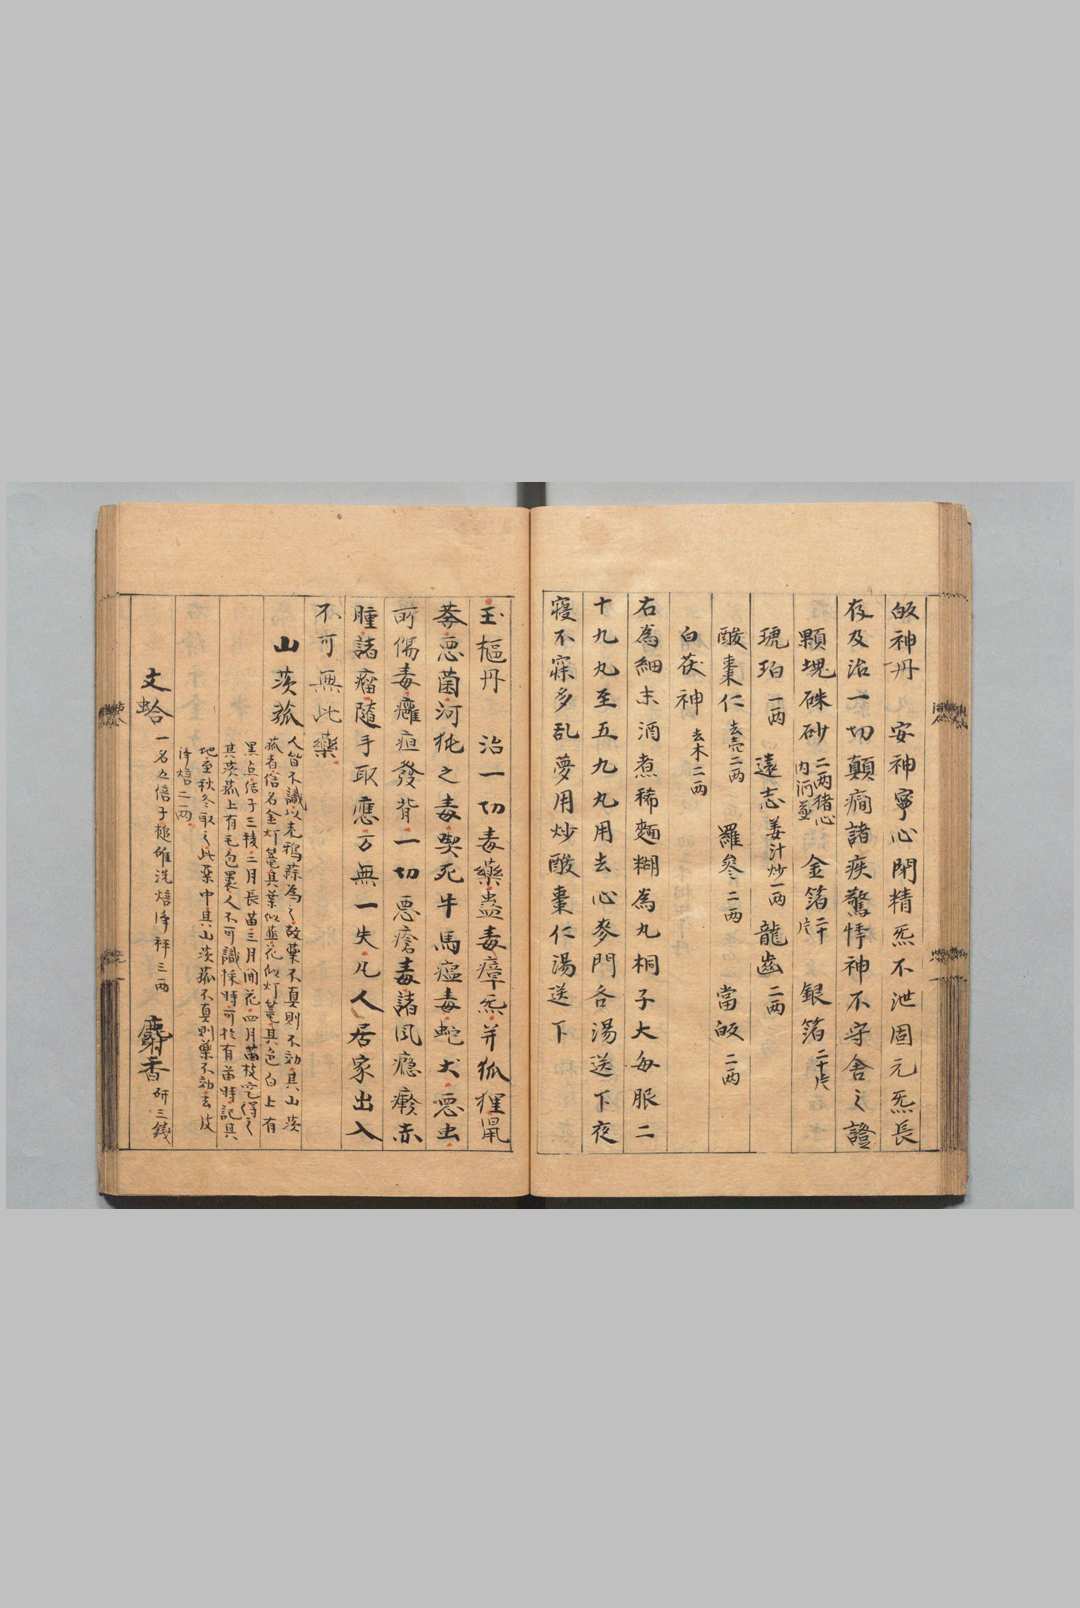 皈神丹　安神寧心閉精炁不泄固元炁長
存及治一切顛癇諸疾驚悸神不守舍之證
顆塊硃砂 二两猪心
内河蒸 金箔 二十片 銀箔 二十片
琥珀 一两 遠志 姜汁炒一两 龍齒 二两
酸棗仁 去壳二两 羅參 二两 當皈 二两
白茯神 去木二两
右為細末酒煮稀麵糊為丸桐子大每服二
十九丸至五九丸用去心麥門冬湯送下夜
寝不寐多乱夢用炒酸棗仁湯送下
玉樞丹　治一切毒藥蠱毒瘴炁并狐狸鼠
莽悪菌河㹠之毒喫死牛馬瘟毒蛇犬悪虫
所傷毒癰疸發背一切悪瘡毒諸風瘾癥赤
腫諸瘤隨手取應方無一失凡人居家出入
不可無此藥
山茨菰 人皆不識以老鴉蒜為之故藥不真則不効其山茨
菰者俗名金灯篭其葉似韭花似灯篭其色白上有
黑点結子三稜二月長苗三月開花四月苗枝
其茨菰上有毛包裹人不可識採時可於有苗時記其
地至秋冬取之此藥中其山茨菰不真則藥不効去皮
净焙二两
文蛤 一名五倍子槌碎洗焙净秤三两 麝香 研三錢